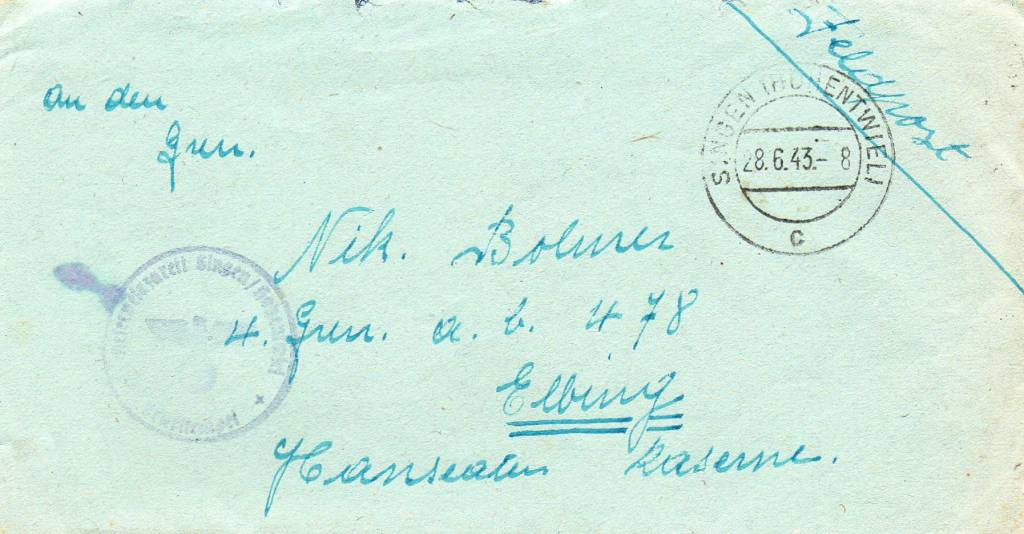 Feldpost
an den
Gren.
SINGEN (HOHENTWIEL)
28.6.43.- 8
c
Nik. Bolmer
4. Gren. a. b. 478
Elbing
Hanseaten Kaserne.
Reservelazarett Singen/Hohentwiel